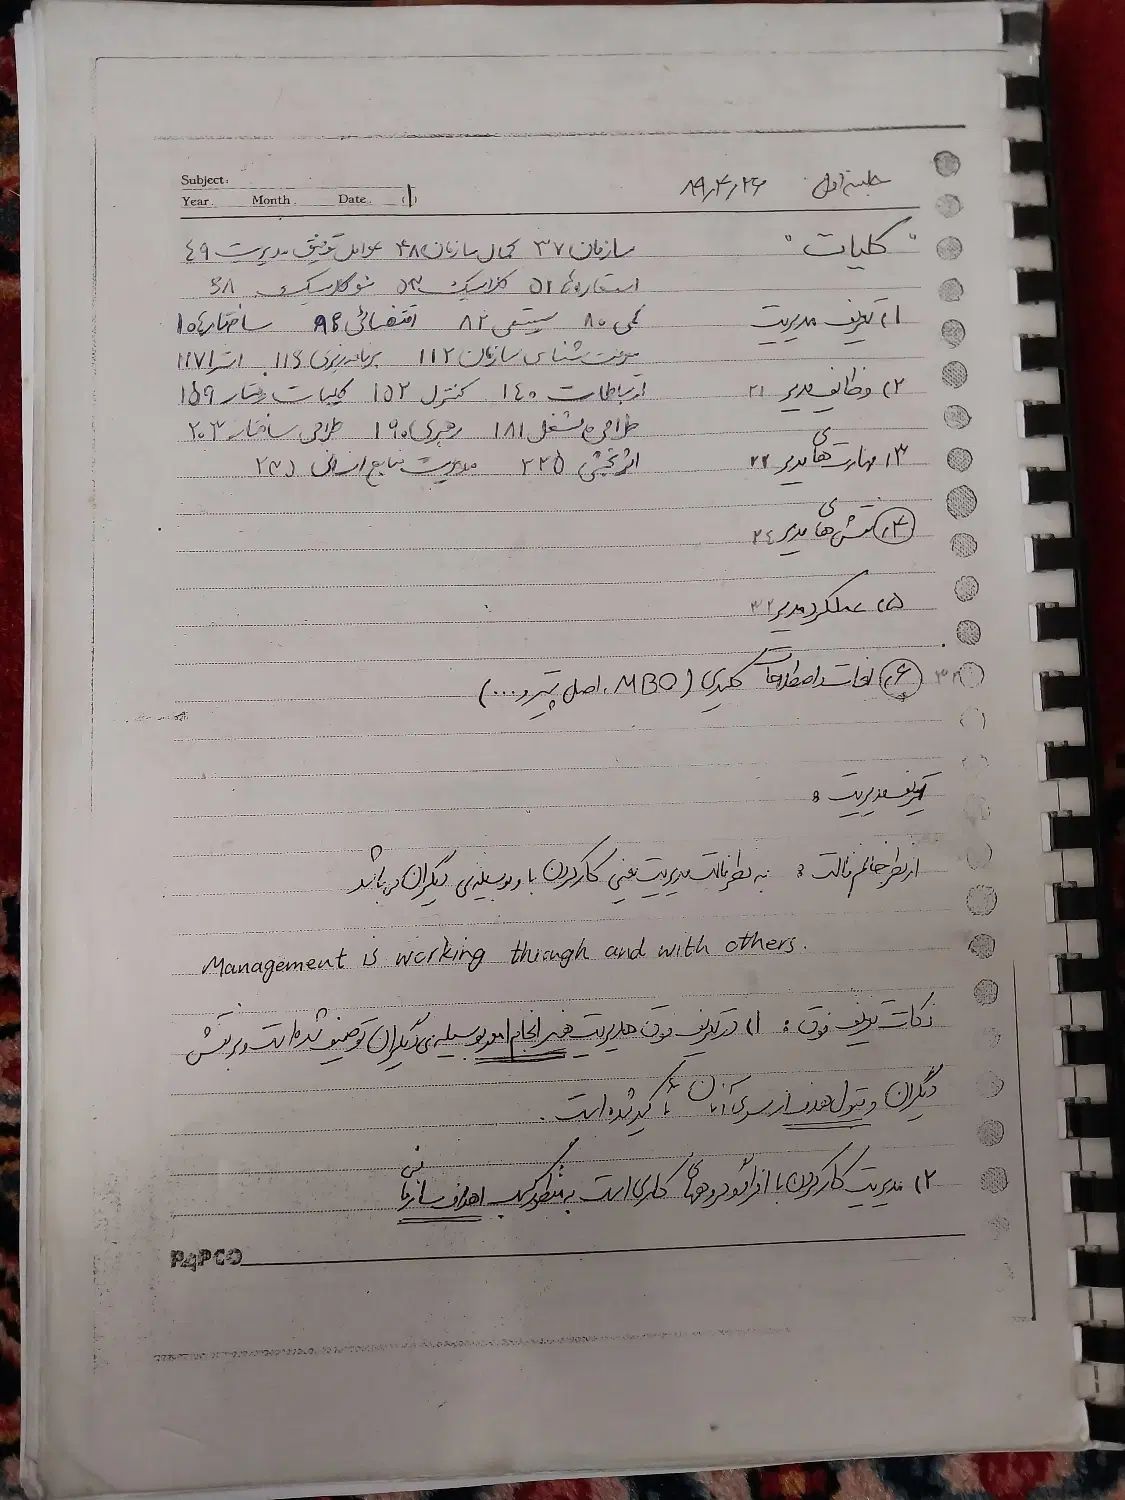 Subject:
Year. Month. Date. (1)
جلسه اول ۸۹,۴,۲۶
"کلیات"
سازمان ۳۷ کمال سازمان ۴۸ عوامل توفیق مدیریت ٤٩
استعاره‌ها ۵۱ کلاسیک ۵۳ نئوکلاسیک ۶۸
۱) تعریف مدیریت
کمی ۸۰ سیستمی ۸۲ اقتضائی ۹۶ ساختار ۱۰۴
معرفت شناسی سازمان ۱۱۲ برنامه‌ریزی ۱۱۶ استرا ۱۱۷
۲) وظایف مدیر ۲۱
ارتباطات ۱۴۰ کنترل ۱۵۲ کلیات رفتار ۱۵۹
طراحی شغل ۱۸۱ رهبری ۱۹۰ طراحی ساختار ۲۰۳
۳) مهارت‌های مدیر ۲۲
اثربخشی ۲۲۵ مدیریت منابع انسانی ۲۳۵
۴) نقش‌های مدیر ۲٤
۵) عملکرد مدیر ۳۲
۶) لغات و اصطلاحات کلیدی (MBO، اصل پیتر و ...) ۳۴
تعریف مدیریت :
از نظر خانم فالت : به نظر فالت مدیریت یعنی کار کردن با و بوسیله‌ی دیگران می‌باشد
Management is working through and with others.
نکات تعریف فوق : ۱) در تعریف فوق مدیریت هنر انجام امور بوسیله‌ی دیگران توصیف شده است و بر نقش
دیگران و قبول هدف از سوی آنان تأکید شده است .
۲) مدیریت کار کردن با افراد و گروههای کاری است به منظور کسب اهداف سازمانی
PAPCO